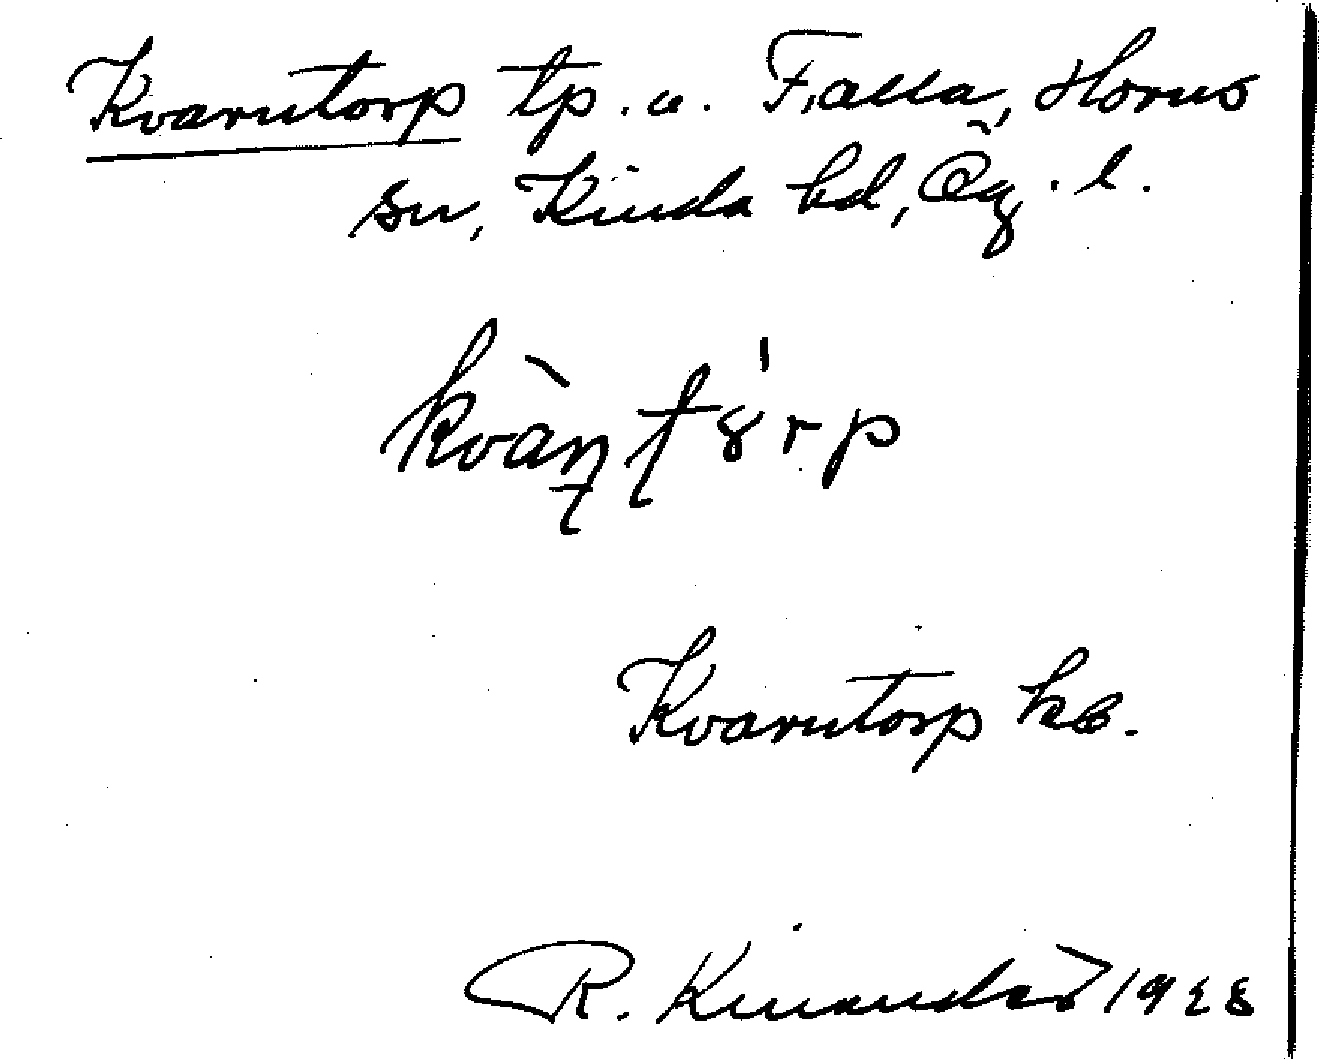 Kvarntorp tp. u. Falla, Horns
sn, Kinda hd, Ög. l.
kvàṉtỡrp
Kvarntorp kb.
R. Kinander 1928